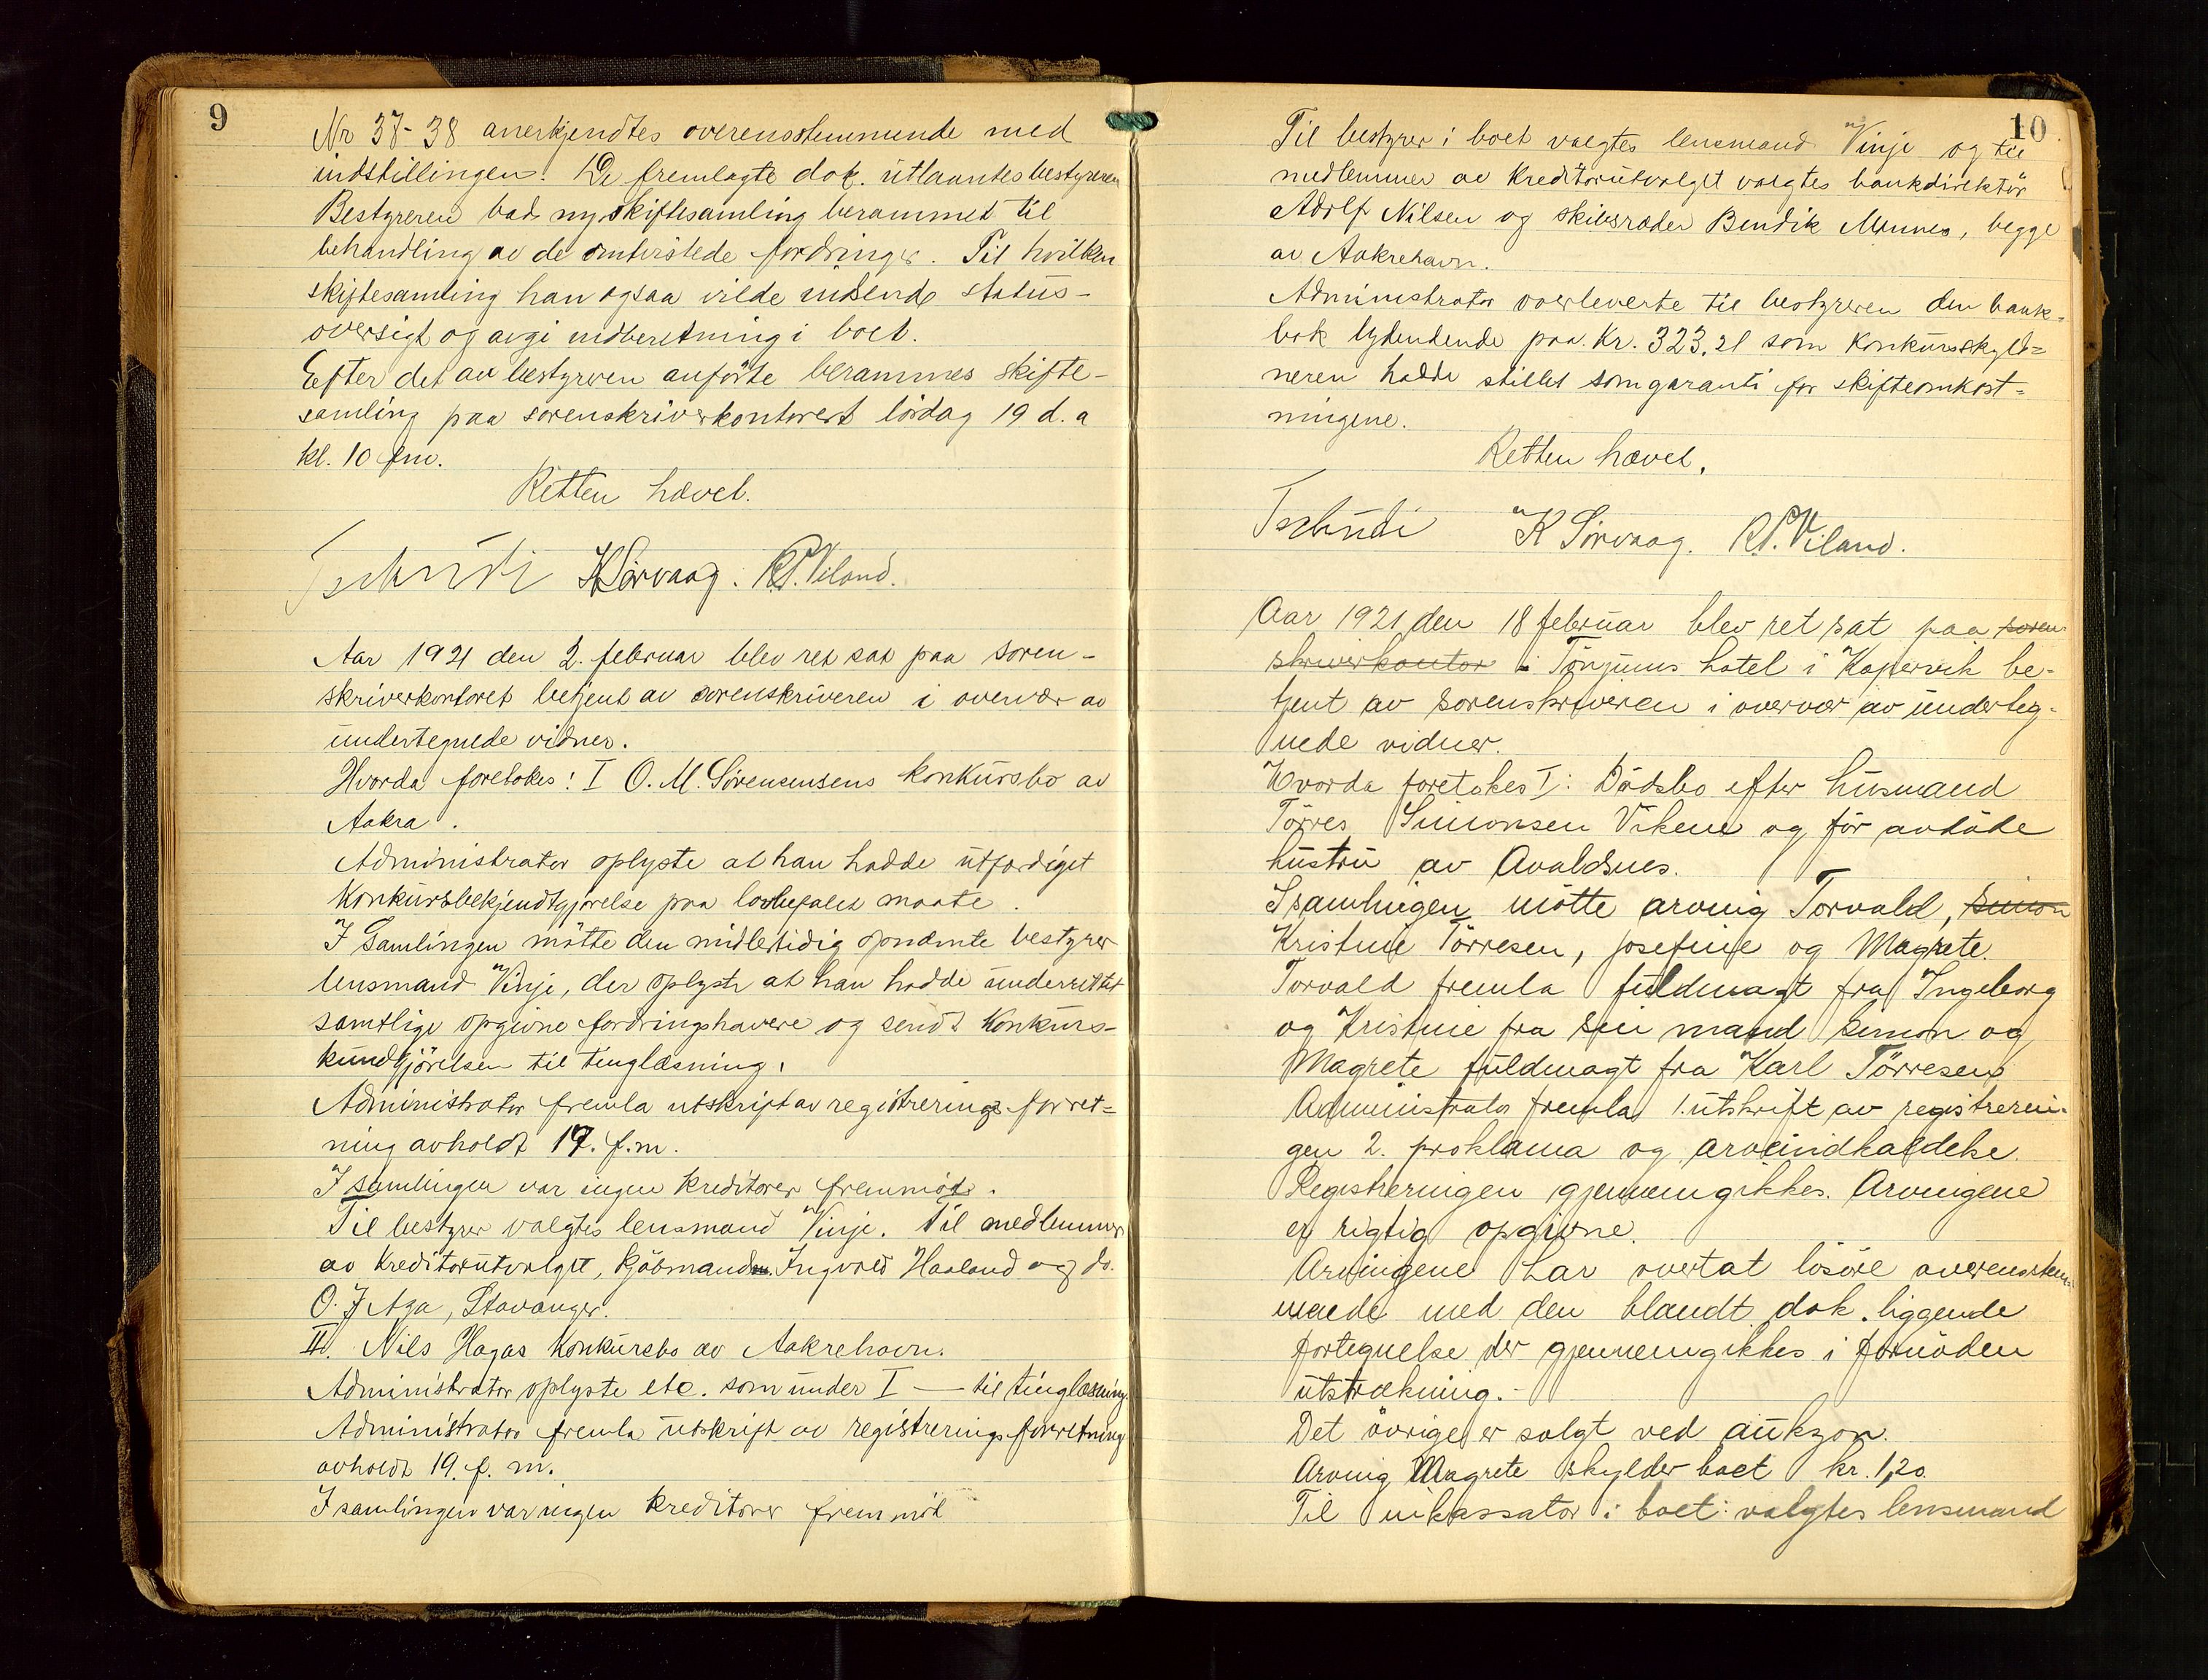 9
Nr 37-38 anerkjendtes overensstemmende med
indstillingen. De fremlagte dok. utlaantes bestyreren
Bestyreren bad ny skiftesamling berammet til
behandling av de omtvistede fordringer. Til hvilken
skiftesamling han ogsaa vilde indsende status-
oversigt og avgi indberetning i boet.
Efter det av bestyreren anförte berammes skifte-
samling paa sorenskriverkontoret lördag 19 d. a
kl. 10 fm.
Retten hævet.
Tschudi K Sörvaag. R.P. Viland.
Aar 1921 den 2. februar blev ret sat paa soren-
skriverkontoret betjent av sorenskriveren i overvær av
undertegnede vidner.
Hvorda foretokes: I O. M. Sörensensens konkursbo av
Aakra.
Administrator oplyste at han hadde utfærdiget
Konkursbekjendtgjörelse paa lovbefalet maate.
I Samlingen mötte den midlertidig opnævnte bestyrer
lensmand Vinje, der oplyste at han hadde underrettet
samtlige opgivne fordringshavere og sendt Konkurs-
kundgjörelsen til tinglæsning.
Administrator fremla utskrift av registrerings forret=
ning avholdt 17. f.m.
I samlingen var ingen kreditorer fremmödt.
Til bestyrer valgtes lensmand Vinje. Til medlemmer
av Kreditorutvalget, kjöbmand Ingvald Haaland og do.
O. J Aga, Stavanger.
II. Nils Hagas Konkursbo av Aakrehavn.
Administrator oplyste etc. som under I — til tinglæsning.
Administrator fremla utskrift av registrerings forretning
avholdt 19. f. m.
I samlingen var ingen kreditorer fremmöt
10
Til bestyrer i boet valgtes lensmand Vinje og til
medlemmer av Kreditorutvalget valgtes bankdirektör
Adolf Nilsen og skibsreder Bendik Mannes, begge
av Aakrehavn.
Administrator overleverte til bestyreren den bank=
bok lydendende paa Kr. 323,21 som Konkursskyld=
neren hadde stillet som garanti for skifteomkost=
ningene.
Retten hævet.
Tschudi K Sörvaag. R.P. Viland.
Aar 1921 den 18 februar blev ret sat paa soren
skriverkontor i Tönjums hotel i Kopervik be-
tjent av sorenskriveren i overvær av underteg-
nede vidner.
Hvorda foretokes I: Dödsbo efter husmand
Törres Simonsen Vikene og för avdöde
hustru av Avaldsnes.
I samlingen mötte arving Torvald, Simon
Kristine Törresen, Josefine og Magrete.
Torvald fremla fuldmagt fra Ingeborg
og Kristine fra sin mand Simon og
Magrete fuldmagt fra Karl Törresen
Administrator fremla 1. utskrift av registrerin-
gen 2. proklama og arveindkaldelse.
Registreringen gjennemgikkes. Arvingene
er rigtig opgivne.
Arvingene har overtat lösöre overensstem-
mende med den blandt dok. liggende
fortegnelse der gjennemgikkes i fornöden
utstrækning.-
Det övrige er solgt ved aukzon.
Arving Magrete skylder boet kr. 1,20
Til inkassator i boet valgtes lensmand